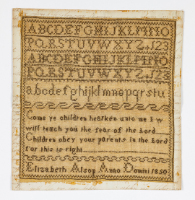 ABCDEFGHIJKLMNO
PQRSTUVWXYZ 123
ABCDEFGHIJKLMNO
PQRSTUVWXYZ 123
abcdefghijklmnopqrstu
Come ye children hearken unto me I w
will teach you the fear of the Lord
Children obey your parents in the Lord
for this is right
Elizabeth Alsop Anno Domini 1830